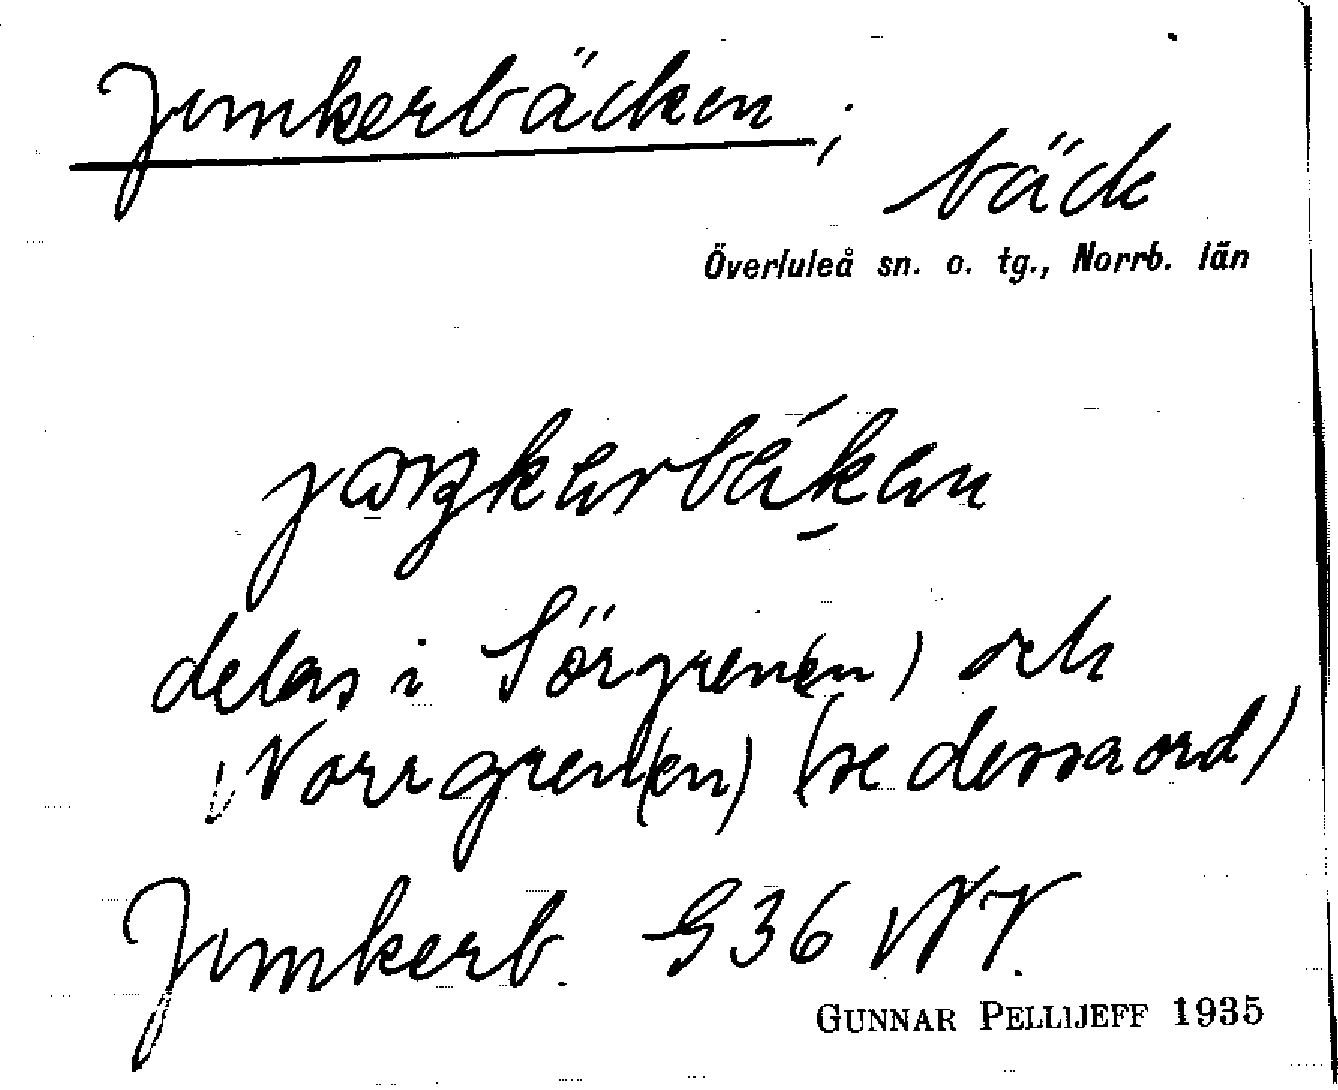 Junkerbäcken;
bäck
Överluleå sn. o. tg., Norrb. län
delas i Sörgren(en) och
Norrgren(en) (se dessa ord)
Junkerb. G36 NV.
GUNNAR PELLIJEFF 1935